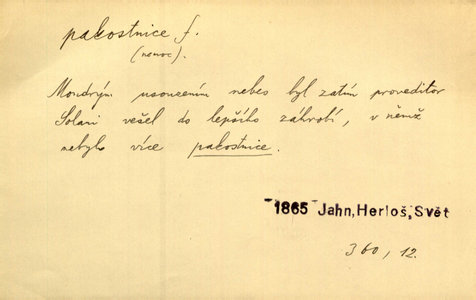 pakostnice f.
(nemoc).
Moudrým usouzením nebes byl zatím proveditor
Solani vešel do lepšího záhrobí, v němž
nebylo více pakostnice.
1865 Jahn, Herloš, Svět
360, 12.